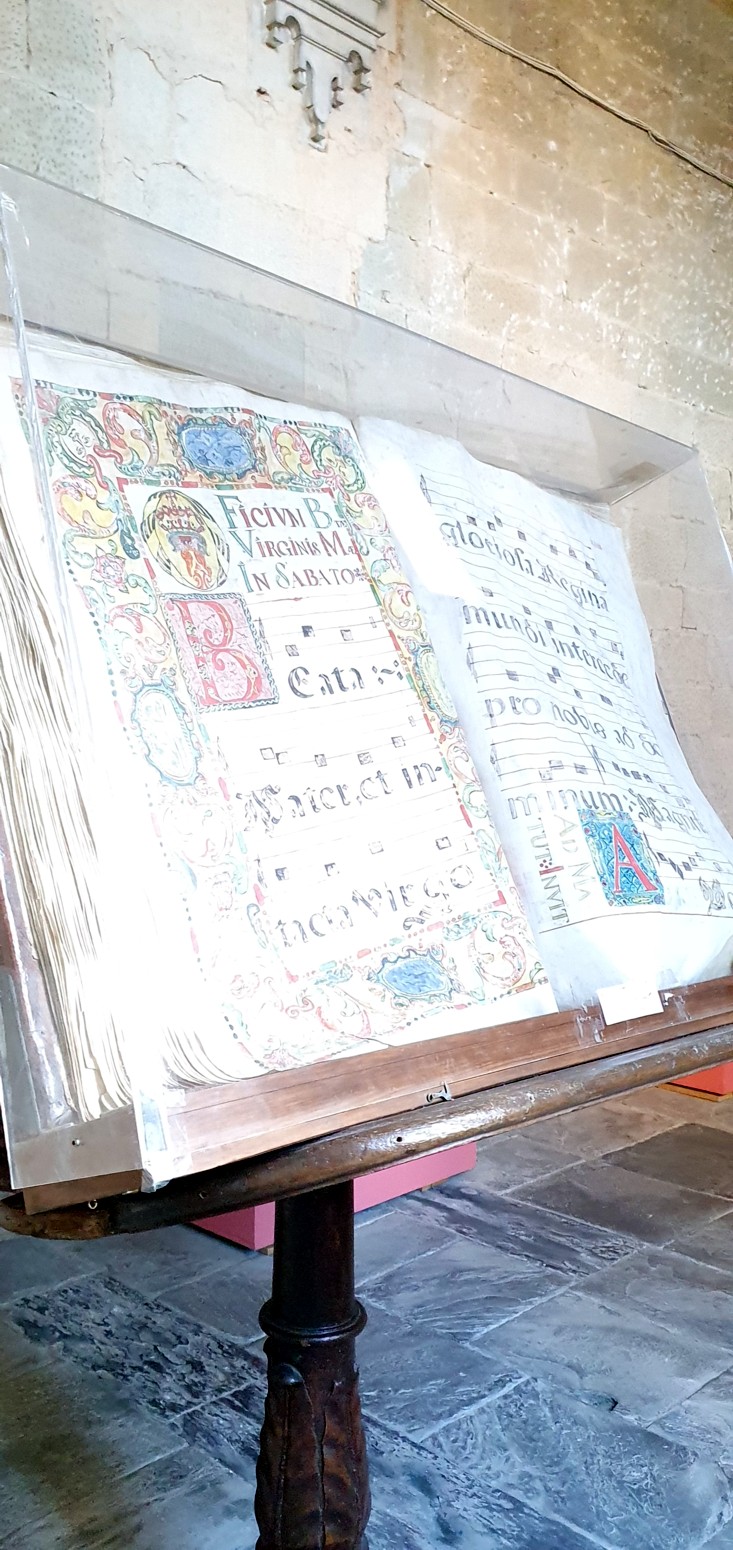 FICIVM B
VIRGINIS M
IN SABATO
B
Eata
Mater, et in-
Virgo
gloriosa Regina
mundi intercede
pro nobis ad do
minum. Magnif
A